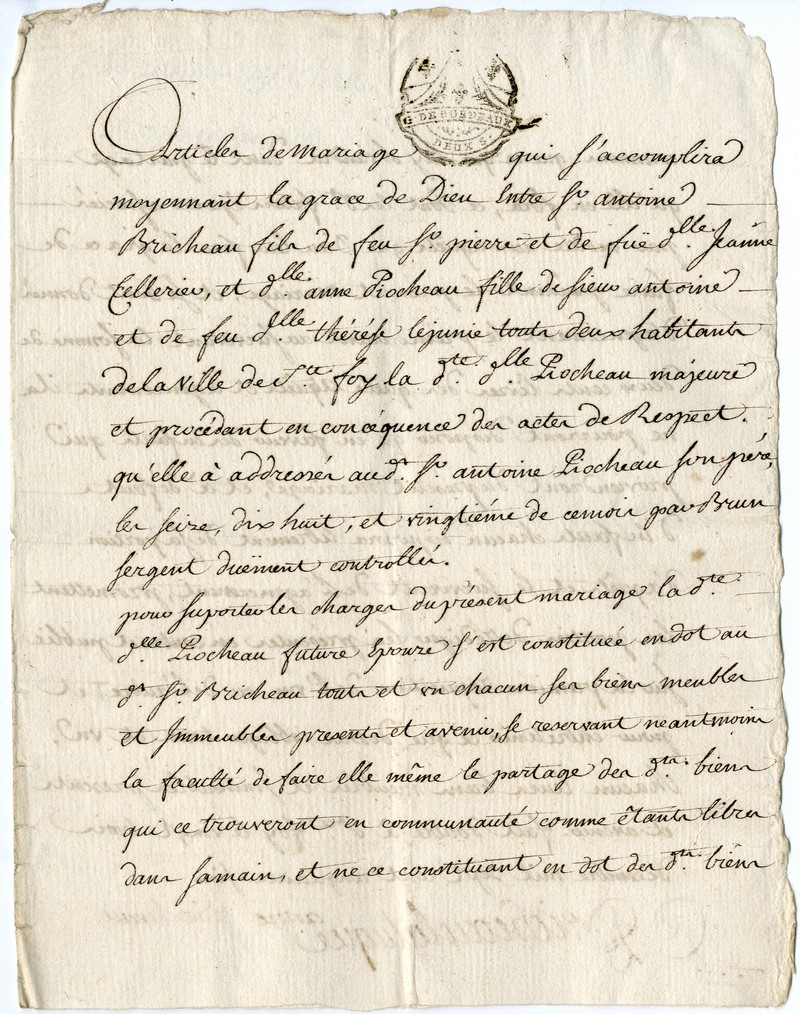 G. DE BORDEAUX
DEUX S.
Articles de Mariage qui s'accomplira
moyennant la grace de Dieu Entre Sr. antoine
Bricheau fils de feu Sr. pierre et de füe dlle. Jeanne
Cellerier, et dlle. anne Piocheau fille de sieur antoine
et de feu dlle. thérése lejunie touts deux habitants
de la Ville de Ste. foy la dte. dlle Piocheau majeure
et procédant en concéquence des actes de Respect.
qu'elle à addressés aud. Sr. antoine Piocheau son pére,
les seize, dix huit, et vingtiéme de ce mois par Brun
sergent duëment controllés.
pour suporter les charges du présent mariage la dte.
dlle. Piocheau future Epouze s'est constituée en dot au
dt. Sr. Bricheau touts et un chacun ses biens meubles
et Immeubles presents et avenir, se reservant neantmoins
la faculté de faire elle même le partage des dts. biens
qui ce trouveront en communauté comme êtants libres
dans sa main, et ne ce constituant en dot des dts. biens